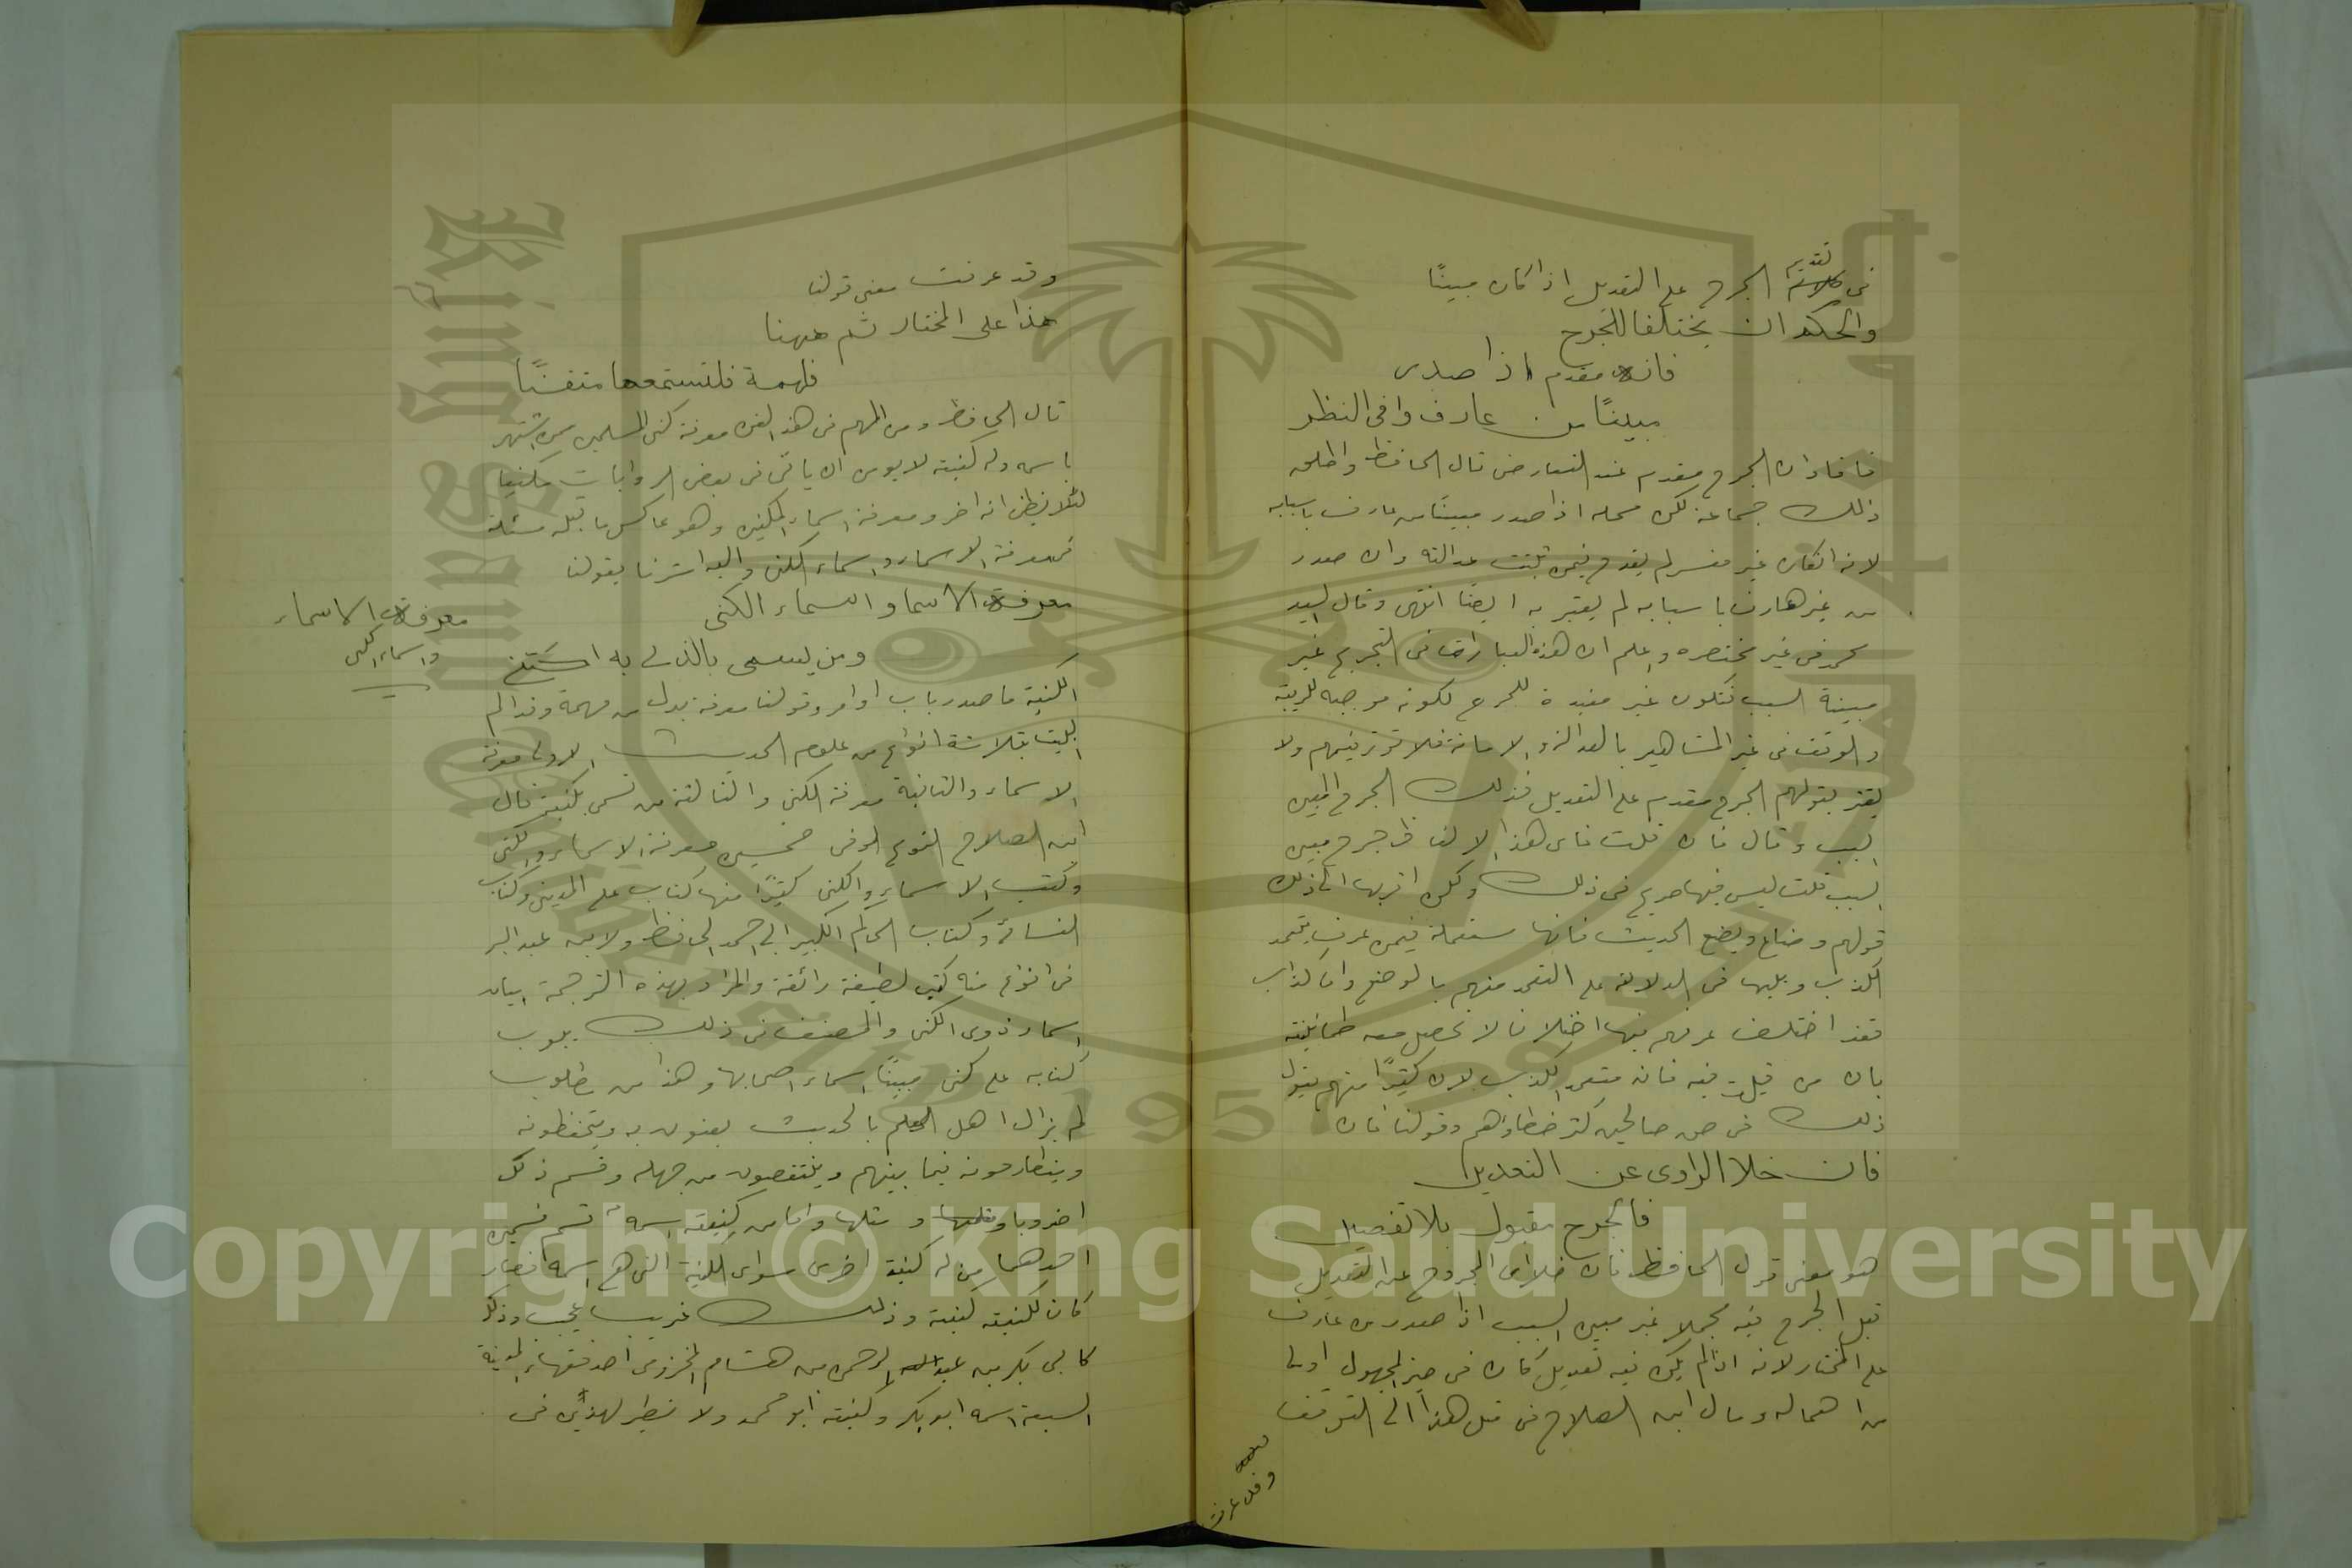 تقديم
فى الجرح على التعديل اذا كان مبينًا
والحكم ان يختلفا للجرح
فانه مقدم اذا صدر
مبينًا من عارف وافى النظر
فافاد ان الجرح مقدم عند التعارض قال الحافظ واطلق
ذلك جماعة لكن محله اذا صدر مبينًا من عارف باسبابه
لانه ان كان غير مفسر لم يقدح فيمن ثبتت عدالته وان صدر
من غير عارف باسبابه لم يعتبر به ايضًا انتهى وقال السيد
محمد فى غير مختصره واعلم ان هذه العبارات فى التجريح غير
مبينة السبب فتكون غير مفيدة للجرح لكونه موجبه للريبة
والوقف فى غير المشاهير بالعدالة والامانة فلا توثر فيهم ولا
يغتر بقولهم الجرح مقدم على التعديل فذلك الجرح المبين
السبب وقال فان قلت فاى هذه الالفاظ جرح مبين
السبب قلت ليس فيها صريح فى ذلك ولكن اقربها الى ذلك
قولهم وضاع ويضع الحديث فانها مستعملة فيمن عرف بتعمد
الكذب ويليها فى الدلالة على التعمد منهم بالوضع واما كذاب
فقد اختلف عرفهم فيها اختلافا لا تحصل معه طمانينة
بان من قيلت فيه فانه متعمد الكذب لان كثيرًا منهم يقول
ذلك فى حق صالحين كثر خطاؤهم وقولنا فان
فان خلا الراوى عن التعديل
فالجرح مقبول بلا تفصيل
هو معنى قول الحافظ فان خلا اى المجروح عن التعديل
قبل الجرح فيه مجملا غير مبين السبب اذا صدر من عارف
على المختار لانه اذا لم يكن فيه تعديل كان فى حيز المجهول اولى
من اهماله ومال ابن الصلاح فى مثل هذا الى التوقف
وقد عرفت
وقد عرفت معنى قولنا
هذا على المختار ثم ههنا
فلهمة فلتستمعها متقنًا
قال الحافظ ومن المهم فى هذا الفن معرفة كنى المسلمين من اشتهر
باسمه وله كنية لا يومن ان ياتى فى بعض الروايات مكنيا
لئلا يظن انه اخر ومعرفة اسماء المكنين وهو عاكس ما قبله مسئلة
فمعرفة الاسماء واسماء الكنى واليه اشرنا بقولنا
معرفة الاسما واسماء الكنى
ومن يسمى بالذى به اكتنى
معرفة الاسماء
واسماء الكنى
الكنية ما صدر باب او ام وقولنا معرفة بدل من مهمة وقد الم
البيت بثلاثة انواع من علوم الحديث الاولى معرفة
الاسماء والثانية معرفة الكنى والثالثة من تسمى بكنيته قال
ابن الصلاح النوع الموفى خمسين معرفة الاسماء والكنى
وكتب الاسماء والكنى كثيرًا منها كتاب على المدينى وكتاب
النسائى وكتاب الحاكم الكبير ابى احمد الحافظ ولابن عبد البر
فى انواع منه كتب لطيفة رائقة والمراد بهذه الترجمة بيان
اسماء ذوى الكنى والمصنف فى ذلك يبوب
كتابه على كنى مبينًا اسماء اصحابها وهذا من مطلوب
لم يزال اهل العلم بالحديث يعنون به ويتحفظونه
ويتطارحونه فيما بينهم وينتقصون من جهله وقسم ذلك
اضروبا ومثلها واما من كنيته اسمه قسم قسمين
احدهما من له كنية اخرى سواى الكنية التى هى اسمه فصار
كان لكنيته كنية وذلك غريب عجيب وذلك
كابى بكر بن عبد الرحمن من هشام المخزومى احد فقهاء المدينة
السبعة اسمه ابو بكر وكنيته ابو محمد ولا نظير لهذين فى
Copyright © King Saud University
1957